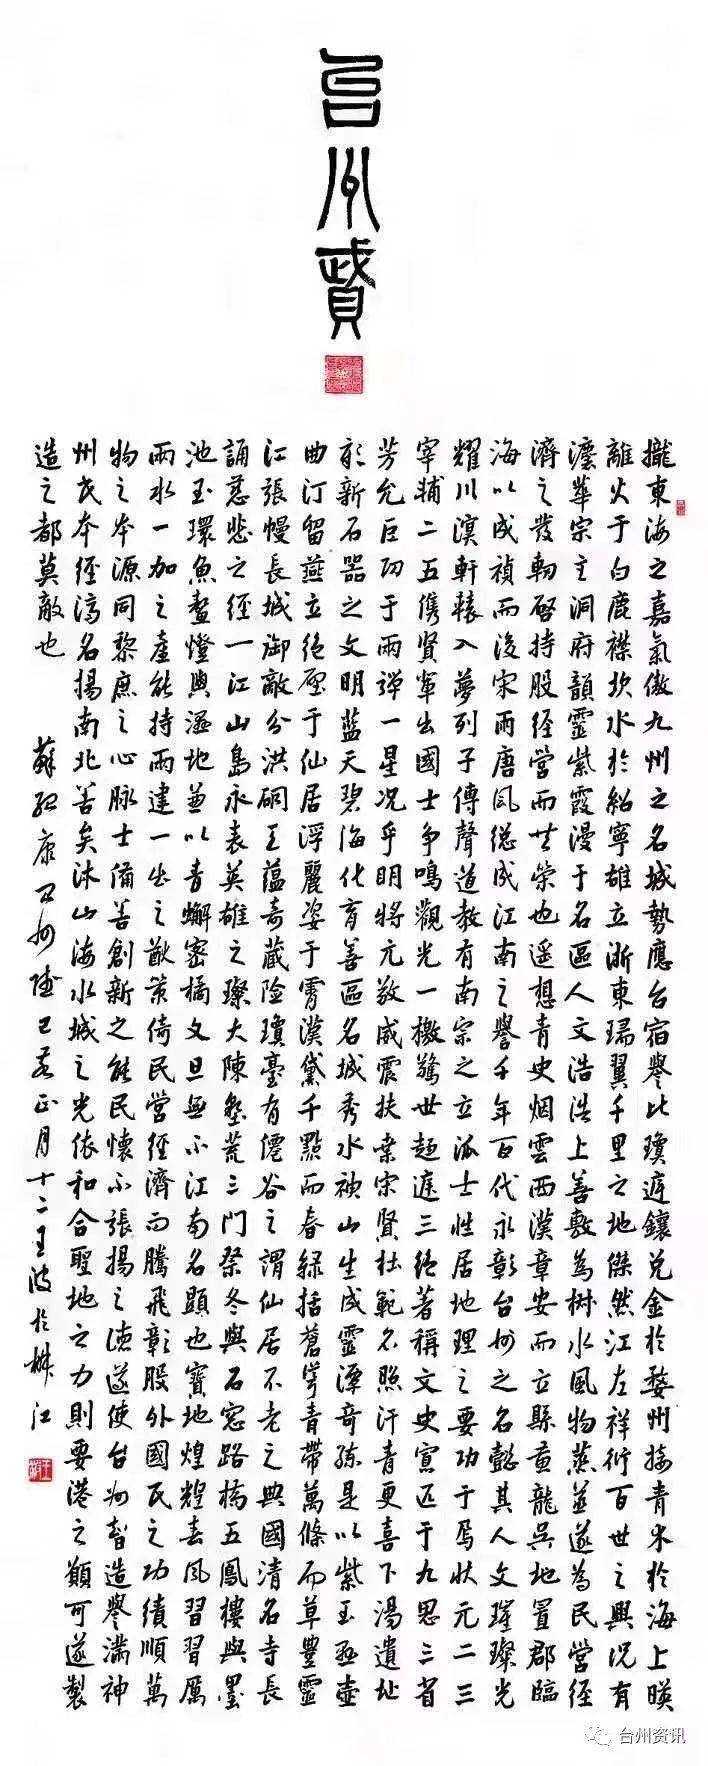 台州賦
攏東海之嘉氣傲九州之名城勢應台宿譽比瓊瑤鑲兌金於婺州接青木於海上暎
離火于白鹿襟坎水於紹寧雄立浙東瑞翼千里之地傑然江左祥衍百世之興況有
瀛華宗主洞府韻靈紫霞漫于名區人文浩浩上善敷為樹水風物蒸蒸遂為民營經
濟之發軔啓持股經營而共榮也遥想青史烟雲西漢章安而立縣黄龍吳地置郡臨
海以成禎而後宋雨唐風總成江南之譽千年百代永彰台州之名懿其人文璀璨光
耀川溟軒轅入夢列子傳聲道教有南宗之立派士性居地理之要功于焉狀元二三
宰輔二五儁賢輩出國士争鳴觀光一檄驚世趄庭三絕著稱文史寔匹于九思三省
芳允巨功于兩彈一星况乎明將元敬威震扶桑宋賢杜範名照汗青更喜下湯遺址
於新石器之文明蓝天碧海化育善區名城秀水神山生成靈潭奇旖是以紫玉垂壺
曲汀留燕立絕壁于仙居浮麗姿于霄漢黛千點而春緑括蒼穹青帶萬條而草豐靈
江張幔長城御敵分洪硐天蘊奇藏险瓊臺有僊谷之謂仙居不老之典國清名寺長
誦慈悲之經一江山島永表英雄之璨大陳墾荒三門祭冬與石窓路橋五鳳樓與墨
池玉環魚鰲燈與濕地兼以青蠏蜜橘文旦無不江南名顯也寶地煌煌春風習習厲
兩水一加之產能持兩建一出之猷策倚民營經濟而騰飛彰股外國民之功績順萬
物之本源同黎庶之心脉士備善創新之能民懷不張揚之德遂使台州智造譽滿神
州民本經濟名揚南北善矣沐山海水城之光依和合聖地之力則要港之願可遂製
造之都莫敵也
王波於椒江
台州资讯